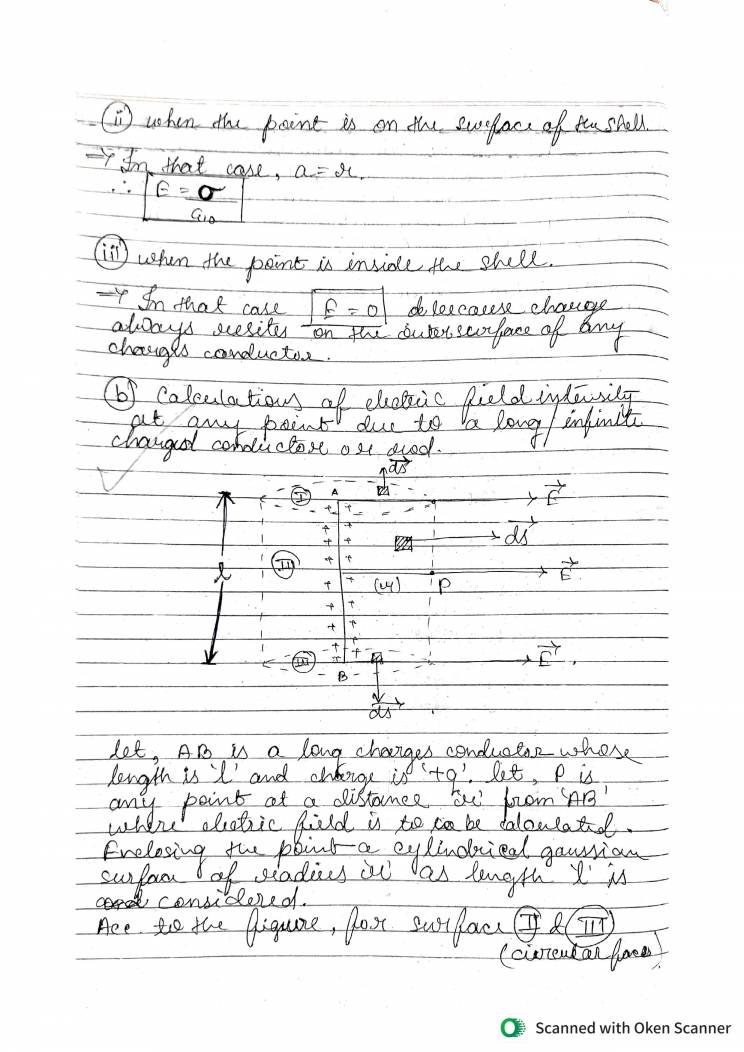 (ii) when the point is on the surface of the shell.
→ In that case, a = r.
∴ E = σ
ε₀
(iii) when the point is inside the shell.
→ In that case E = 0 because charge
always resites on the outer surface of any
charges conductor.
(b) Calculations of electric field intensity
at any point due to a long/infinite
charged conductor or rod.
ds
I A E
+ +
+ +
+ + ds
l II + +
+ + (r) P E
+ +
+ +
+ +
+ +
III + + E
B
ds
let, AB is a long charges conductor whose
length is 'l' and charge is '+q'. let, P is
any point at a distance 'r' from 'AB'
where electric field is to be calculated.
Enclosing the point a cylindrical gaussian
surface of radius 'r' as length 'l' is
considered.
Acc. to the figure, for surface I & III
(circular faces)
Scanned with Oken Scanner